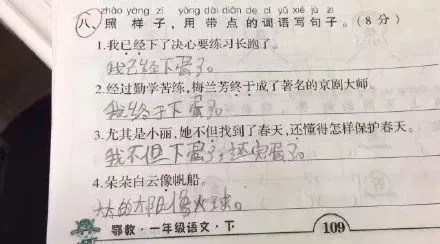 zhào yàng zi yòng dài diǎn de cí yǔ xiě jù zi
八、照 样 子，用 带 点 的 词 语 写 句 子。（8 分）
1.我已经下了决心要练习长跑了。
我已经下蛋了。
2.经过勤学苦练，梅兰芳终于成了著名的京剧大师。
我终于下蛋了。
3.尤其是小丽，她不但找到了春天，还懂得怎样保护春天。
我不但下蛋了，还完蛋了。
4.朵朵白云像帆船。
大大的太阳像火球。
鄂教·一年级语文·下
109